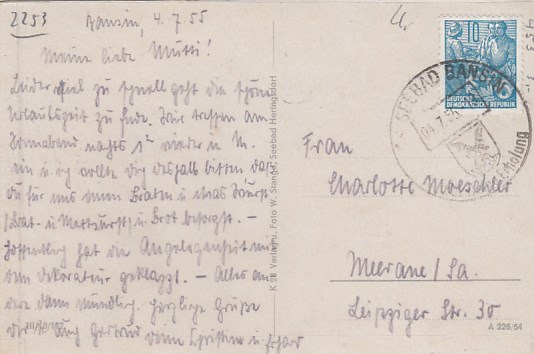 2253
Bansin, 4.7.55
Meine liebe Mutti!
Leider viel zu schnell geht die schöne
Urlaubszeit zu Ende. Wir treffen am
Sonnabend nachts 1 wieder in M.
ein u. ich wollte Dich deshalb bitten daß
Du für uns einen Braten u. etwas Wurst
(Brat- u. Mettwurst) u. Brot besorgst. –
Hoffentlich hat die Angelegenheit mit
dem Dekorateur geklappt. – Alles an-
dere dann mündlich. Herzliche Grüße
Christine u.
K 28 Verlag u. Foto W. Stange, Seebad Heringsdorf
10
DEUTSCHE
DEMOKRATISCHE REPUBLIK
SEEBAD BANSIN
04.7.55
Erholung
Frau
Charlotte Moeschler
Meerane/Sa.
Leipziger Str. 30
A 226/54